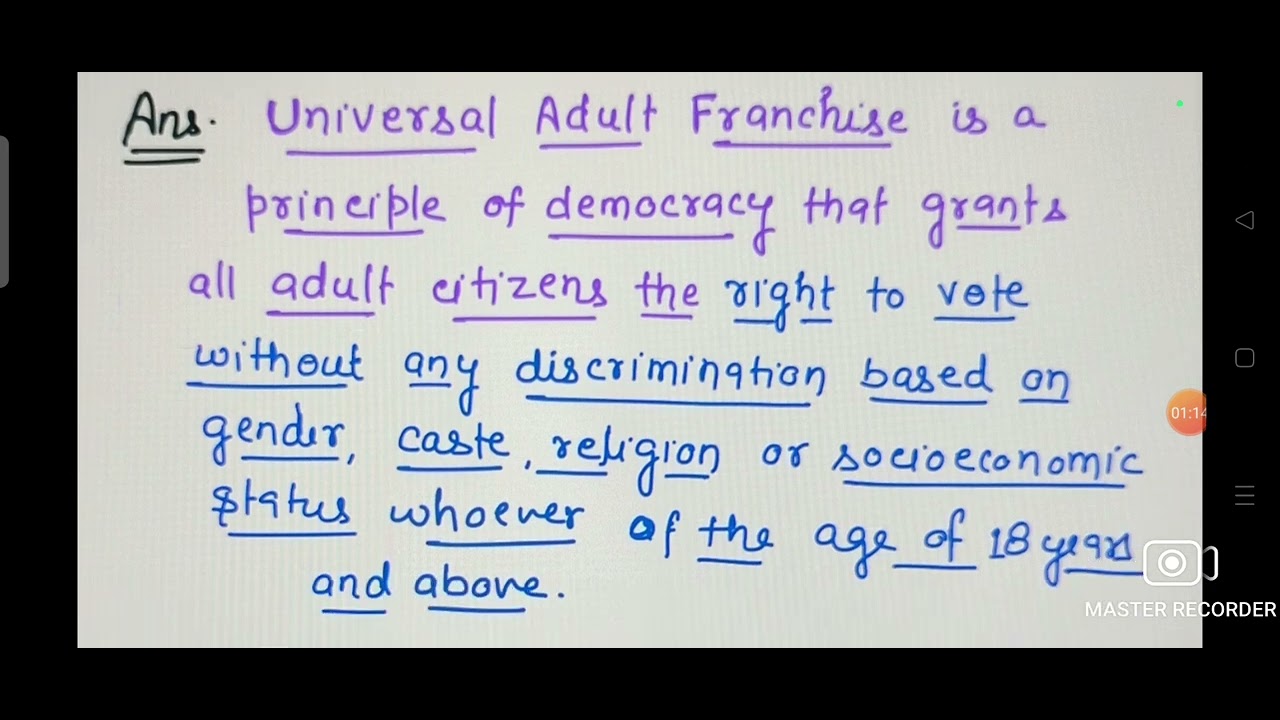 Ans. Universal Adult Franchise is a
principle of democracy that grants
all adult citizens the right to vote
without any discrimination based on
gender, caste, religion or socioeconomic
status whoever of the age of 18 years
and above.
01:14
MASTER RECORDER